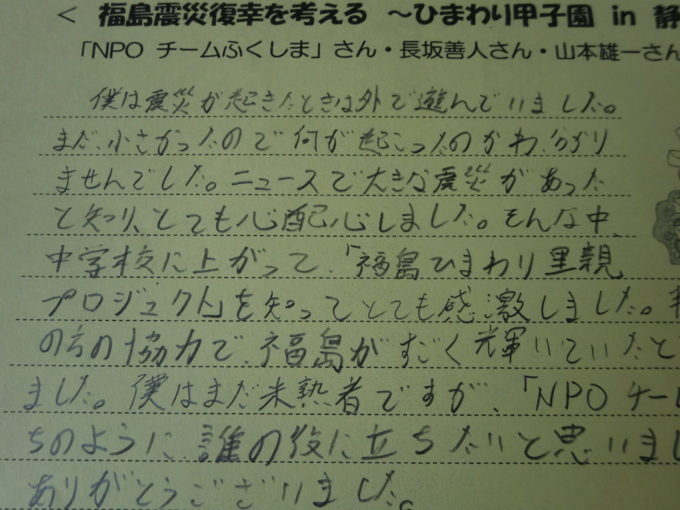 < 福島震災復幸を考える ～ひまわり甲子園 in 静
「NPO チームふくしま」さん・長坂善人さん・山本雄一さん
僕は震災が起きたときは外で遊んでいました。
まだ小さかったので何が起こったのかわ分かり
ませんでした。ニュースで大きな震災があった
と知り、とても心配心しました。そんな中、
中学校に上がって「福島ひまわり里親
プロジェクト」を知ってとても感激しました。
の方の協力で福島がすごく輝いていたと
ました。僕はまだ未熟者ですが、「NPO チー
ちのように誰の役に立ちたいと思いまし
ありがとうございました。